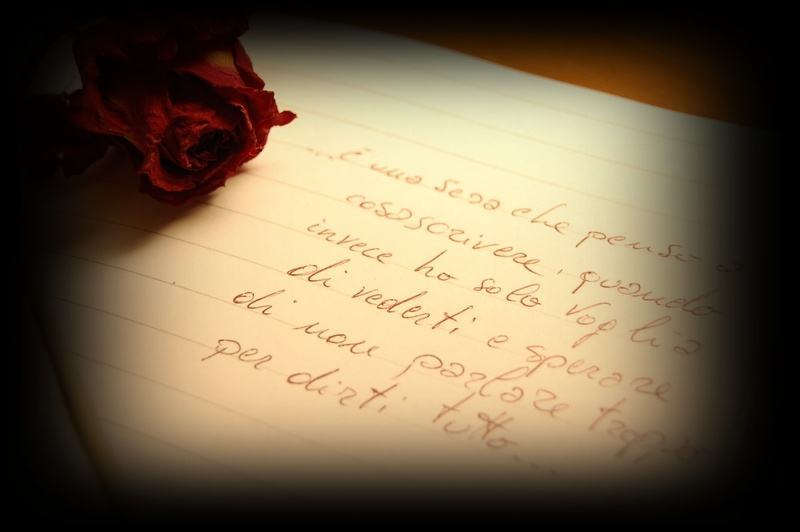 ...è una sera che penso a
cosa scrivere, quando
invece ho solo voglia
di vederti e sperare
di non parlare troppo
per dirti tutto...